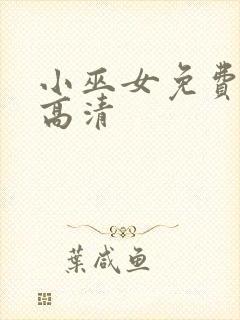 小巫女免费
高清
葉咸鱼